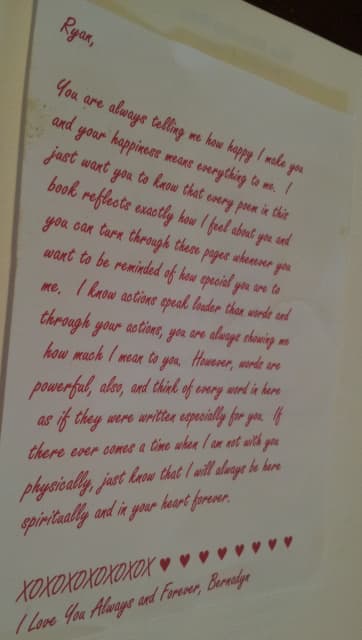 Ryan,
You are always telling me how happy I make you
and your happiness means everything to me. I
just want you to know that every poem in this
book reflects exactly how I feel about you and
you can turn through these pages whenever you
want to be reminded of how special you are to
me. I know actions speak louder than words and
through your actions, you are always showing me
how much I mean to you. However, words are
powerful, also, and think of every word in here
as if they were written especially for you. If
there ever comes a time when I am not with you
physically, just know that I will always be here
spiritually and in your heart forever.
XOXOXOXOXOXOX ♥ ♥ ♥ ♥ ♥ ♥ ♥ ♥
I Love You Always and Forever, Bernadyn